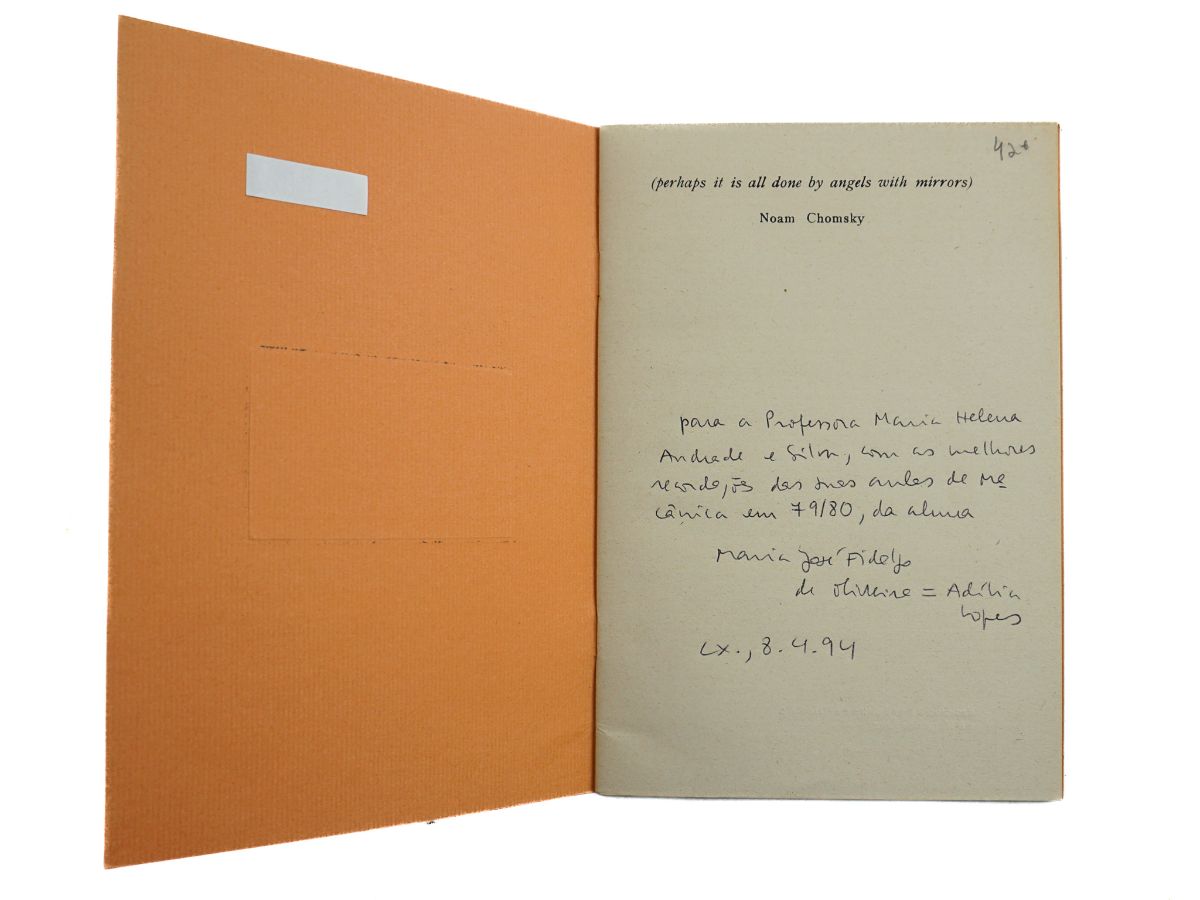 42
(perhaps it is all done by angels with mirrors)
Noam Chomsky
para a Professora Maria Helena
Andrade e Silva, com as melhores
recordações das suas aulas de Me
cânica em 79/80, da aluna
Maria José Fidalgo
de Oliveira = Adília
Lopes
Lx., 8.4.94